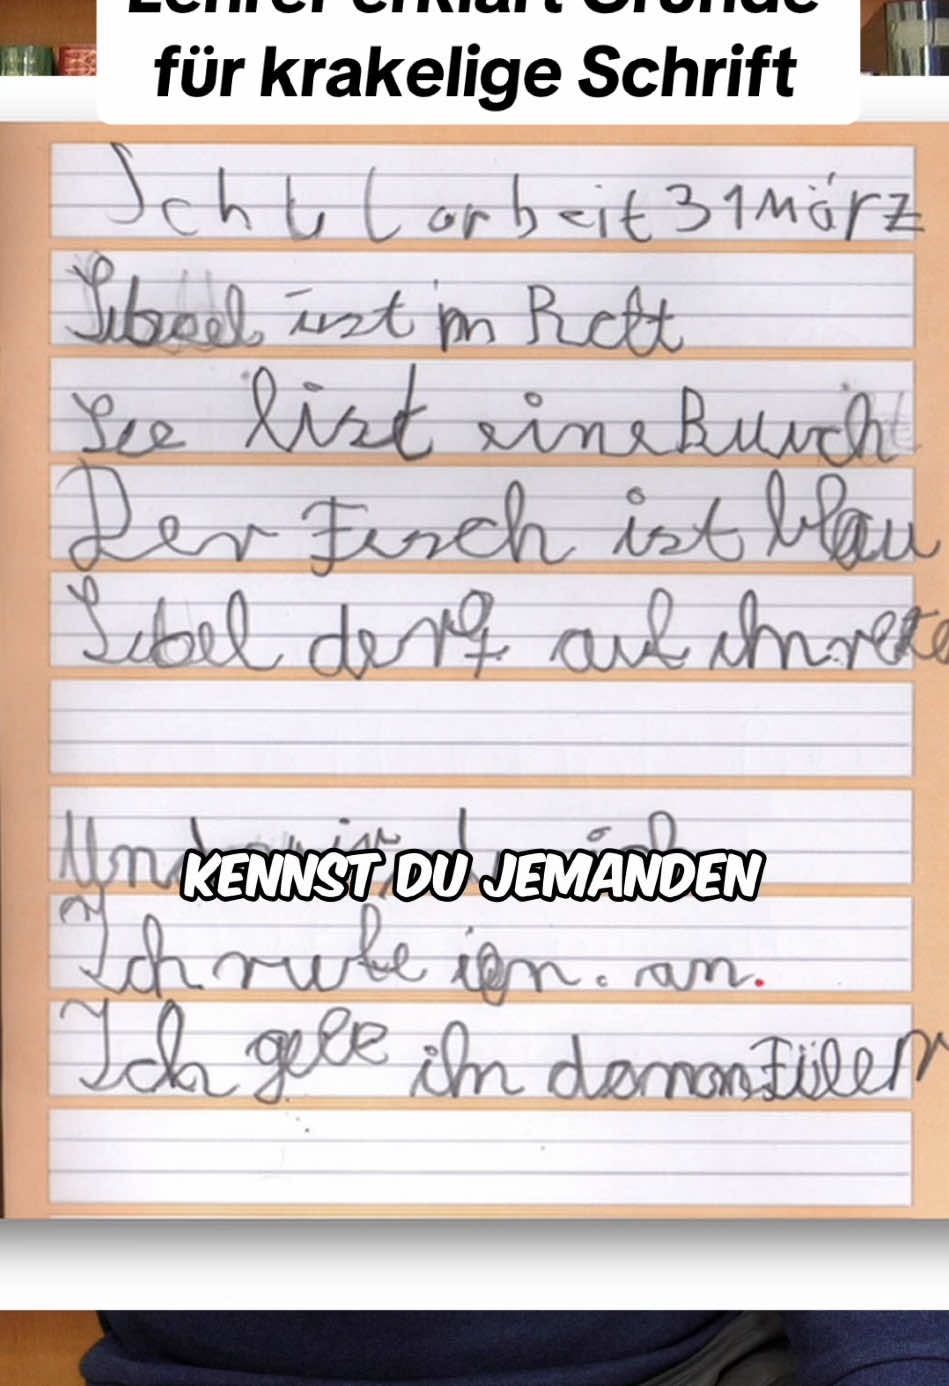 Lehrer erklärt Gründe
für krakelige Schrift
Schularbeit 31 März
Sibel ist im Bett
See list eine Buuch
Der Fisch ist blau
Sibel derf auf
KENNST DU JEMANDEN
Ich rufe ign. an.
Ich gebe ihn Füler